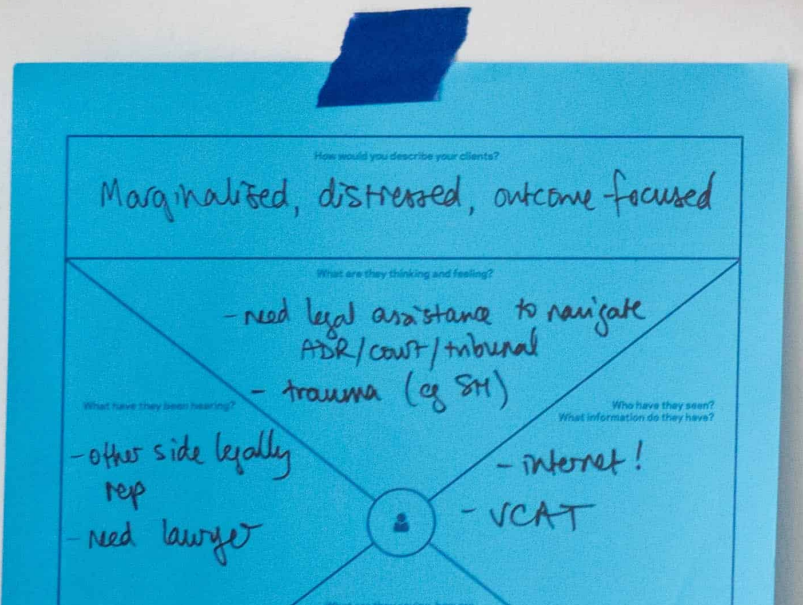 How would you describe your clients?
Marginalised, distressed, outcome focused
What are they thinking and feeling?
- need legal assistance to navigate
ADR/court/tribunal
- trauma (eg SH)
What have they been hearing?
- other side legally
rep
- need lawyer
Who have they seen?
What information do they have?
- internet!
- VCAT